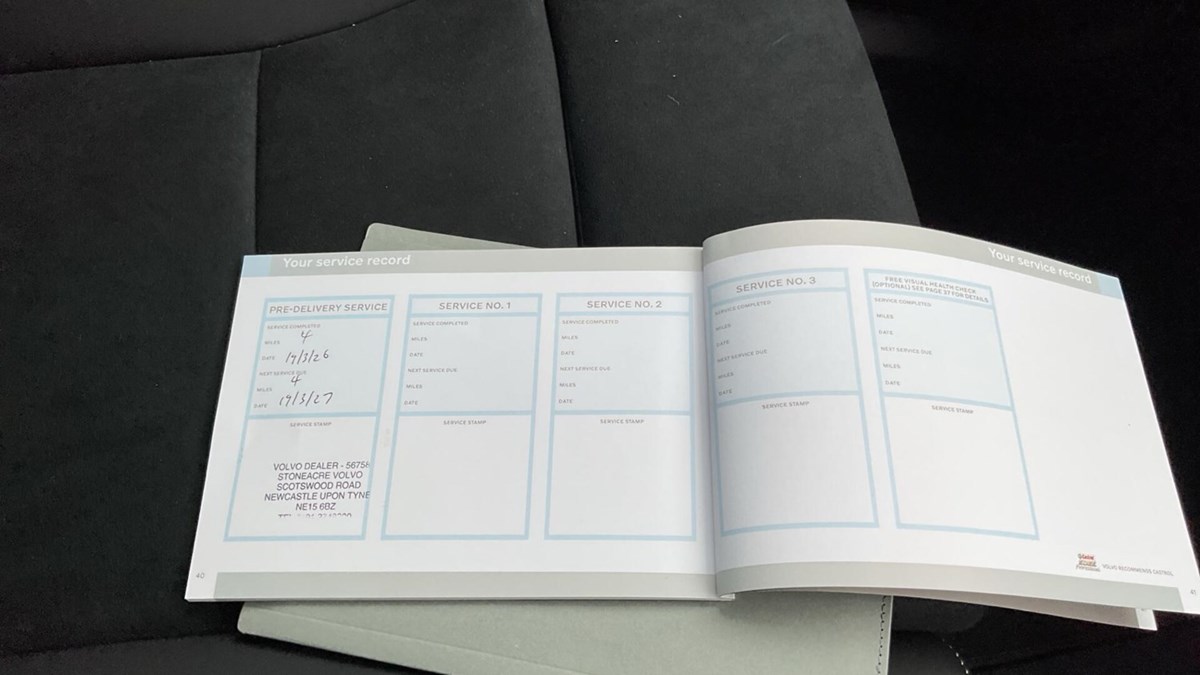 Your service record
PRE-DELIVERY SERVICE
SERVICE COMPLETED
MILES 4
DATE 19/3/26
NEXT SERVICE DUE
MILES 4
DATE 19/3/27
SERVICE STAMP
VOLVO DEALER - 56758
STONEACRE VOLVO
SCOTSWOOD ROAD
NEWCASTLE UPON TYNE
NE15 6BZ
SERVICE NO. 1
SERVICE COMPLETED
MILES
DATE
NEXT SERVICE DUE
MILES
DATE
SERVICE STAMP
SERVICE NO. 2
SERVICE COMPLETED
MILES
DATE
NEXT SERVICE DUE
MILES
DATE
SERVICE STAMP
40
Your service record
SERVICE NO. 3
SERVICE COMPLETED
MILES
DATE
NEXT SERVICE DUE
MILES
DATE
SERVICE STAMP
FREE VISUAL HEALTH CHECK
(OPTIONAL) SEE PAGE 37 FOR DETAILS
SERVICE COMPLETED
MILES
DATE
NEXT SERVICE DUE
MILES
DATE
SERVICE STAMP
VOLVO RECOMMENDS CASTROL
41